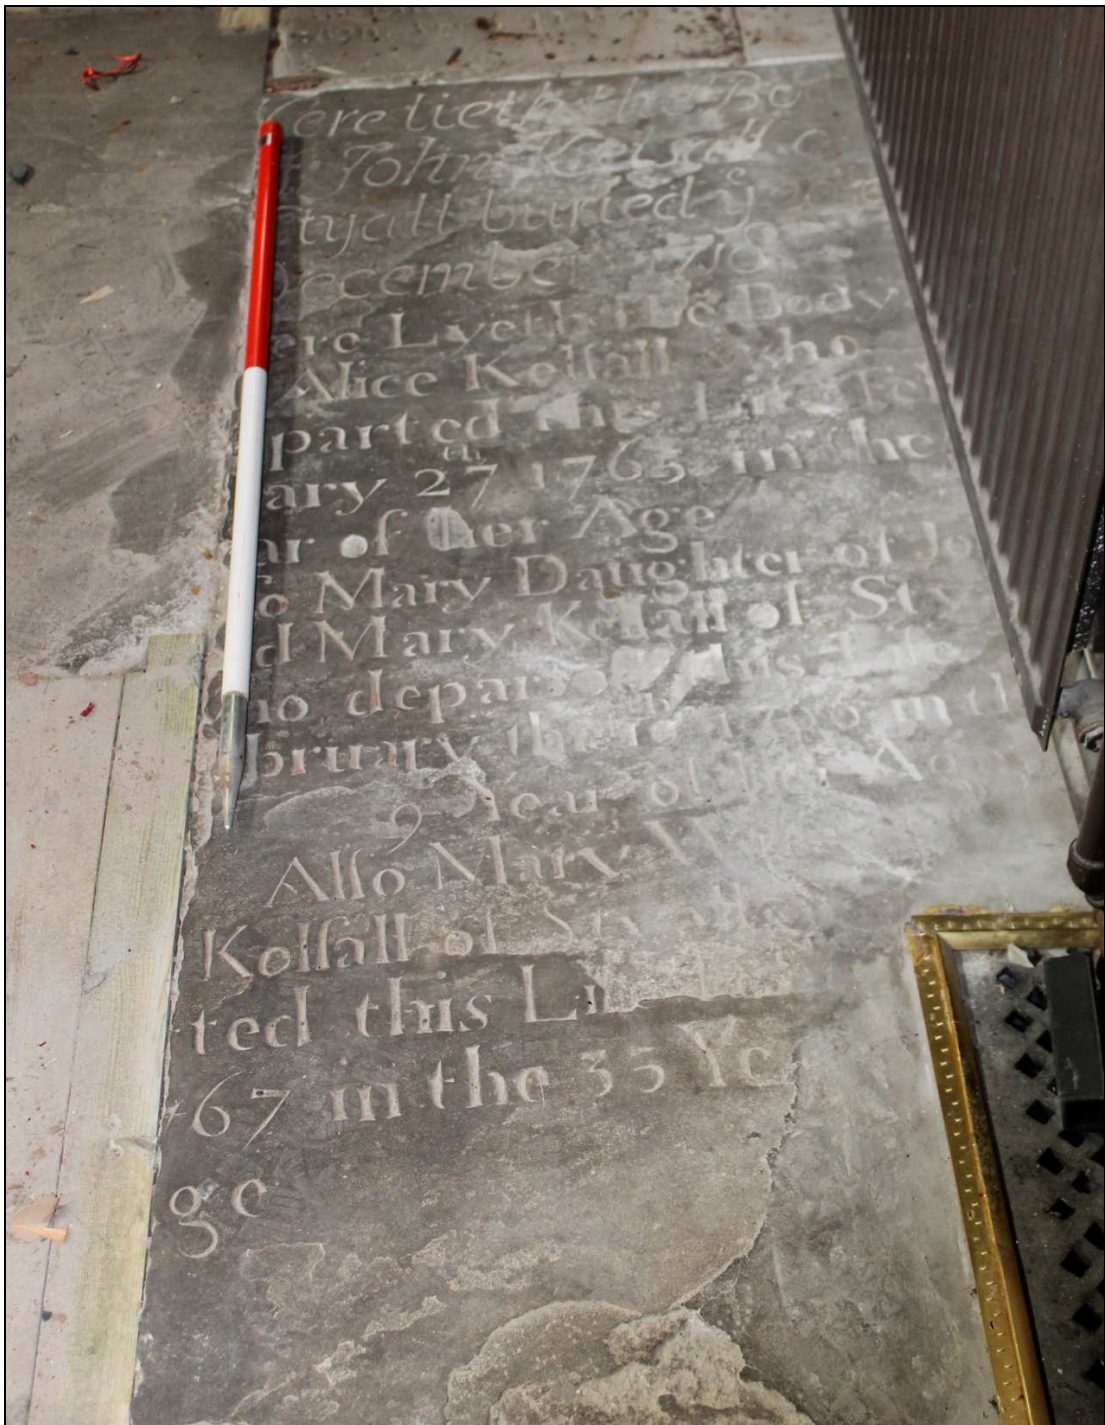 ere lieth the Bo
John Kelsall
tyall buried ẙ
December 1718
ere Lyeth the Body
Alice Kelſall who
parted this Life Feb
ary 27th 1765 in the
ar of Her Age
ſo Mary Daughter of Jo
d Mary Kelſall of Sty
ho departed this Life
bruary the 1 in th
9 Year of her Age
Allſo Mary W
Kelſall of Sty
ted this Li
67 in the 35 Ye
ge